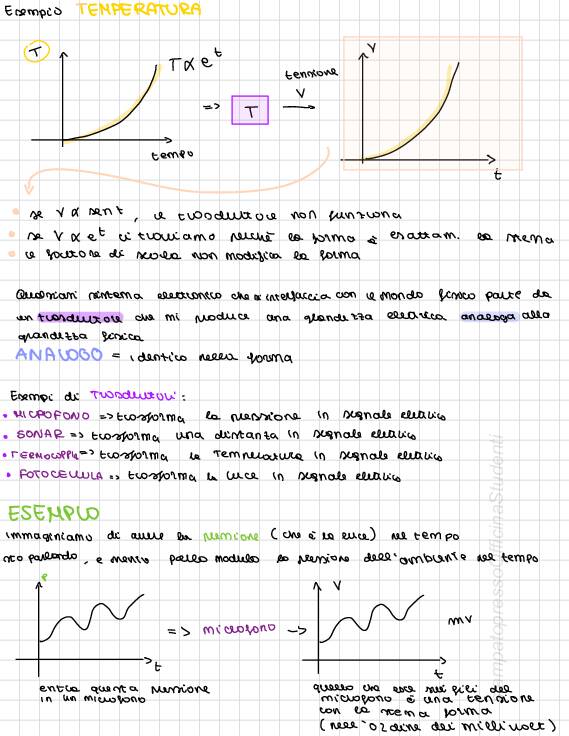 Esempio TEMPERATURA
T
T ∝ e^t
tempo
=> T
tensione
V
V
t
• se V ∝ sen t, il trasduttore non funziona
• se V ∝ e^t ci troviamo perché la forma è esattam. la stessa
• il fattore di scala non modifica la forma
Qualsiasi sistema elettronico che si interfaccia con il mondo fisico parte da
un trasduttore che mi produce una grandezza elettrica analoga alla
grandezza fisica
ANALOGO = identico nella forma
Esempi di trasduttori:
• MICROFONO => trasforma la pressione in segnale elettrico
• SONAR => trasforma una distanza in segnale elettrico
• TERMOCOPPIA => trasforma la temperatura in segnale elettrico
• FOTOCELLULA => trasforma la luce in segnale elettrico
ESEMPIO
immaginiamo di avere la pressione (che è la luce) nel tempo
sto parlando, e mentre parlo modulo la pressione dell'ambiente nel tempo
P
t
=> microfono ->
V
t
mV
entra questa pressione
in un microfono
quello che esce sui fili del
microfono è una tensione
con la stessa forma
(nell'ordine dei millivolt)